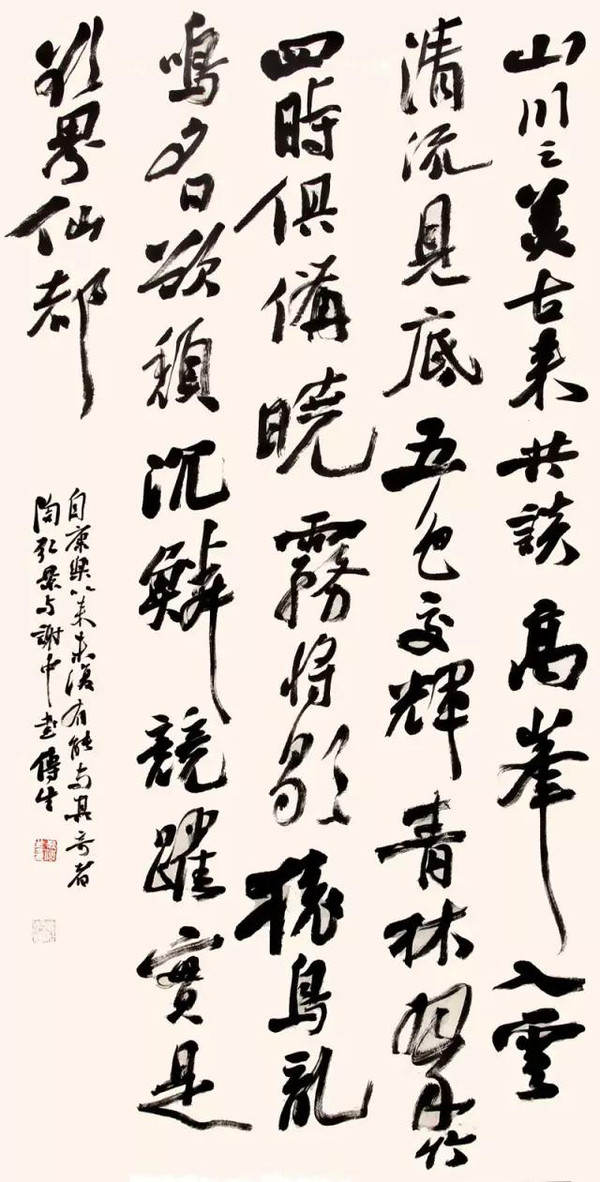 山川之美古来共談高峯入雲
清流見底五色交輝青林翠竹
四時俱備曉霧将歇猿鳥亂
鳴夕日欲頹沉鱗競躍實是
欲界仙都
自康樂以来未復有能与其奇者
陶弘景与謝中書傳生